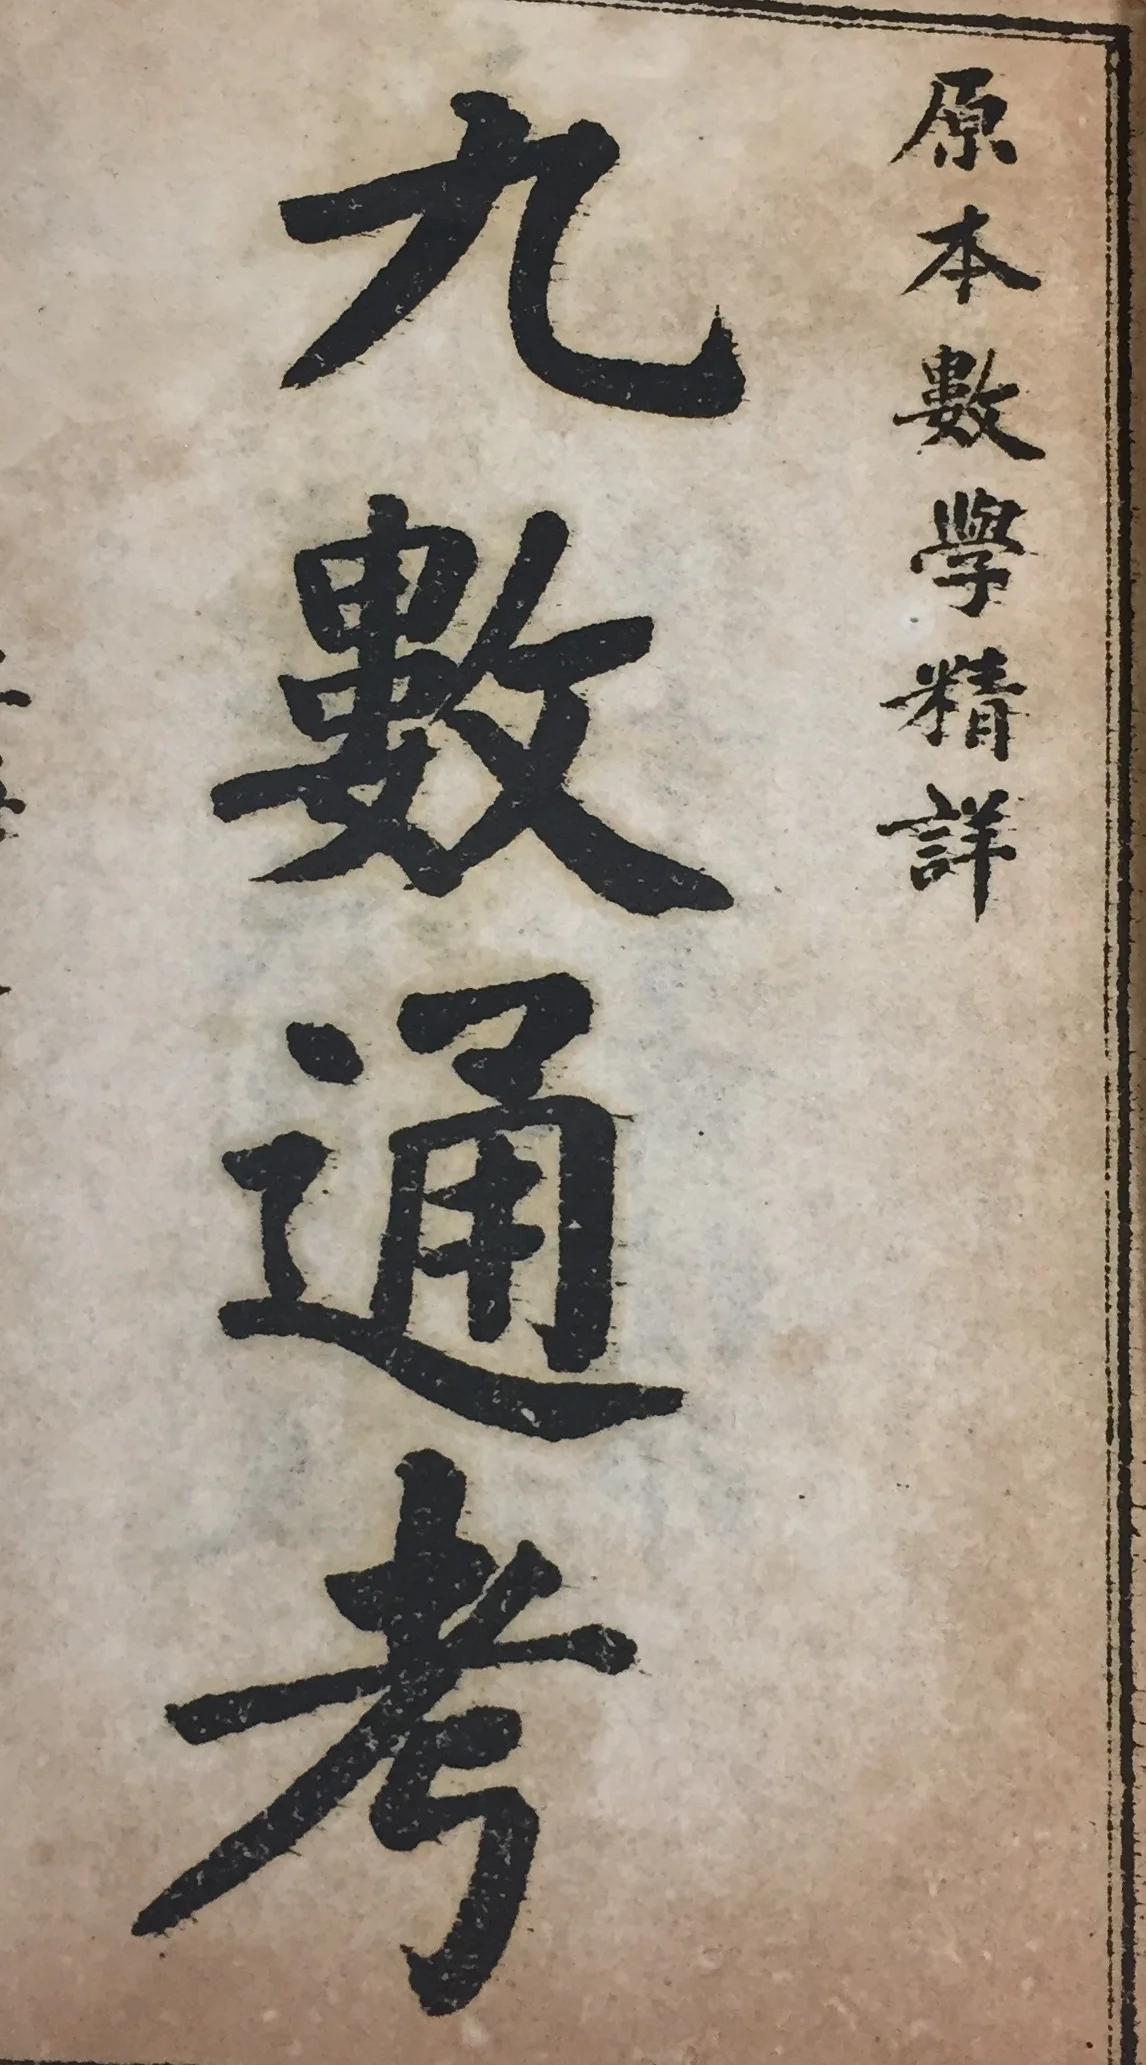 原本數學精詳
九數通考